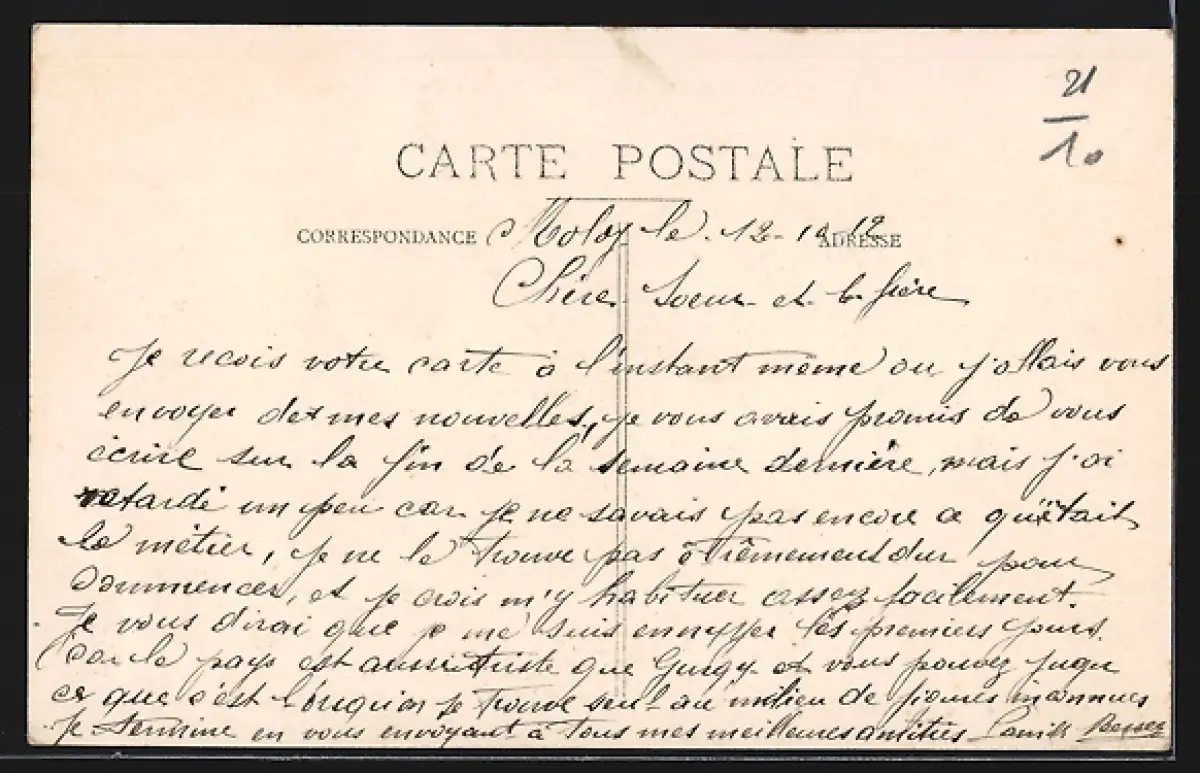 21
10
CARTE POSTALE
CORRESPONDANCE
ADRESSE
Moloy le 12-10-12
Chère Soeur et b. frère
Je recois votre carte à l'instant même ou j'allais vous
envoyer de mes nouvelles, je vous avais promis de vous
écrire sur la fin de la semaine dernière, mais j'ai
retardé un peu car je ne savais pas encore ce qu'était
le métier, je ne le trouve pas dur pour
commencer, et je crois m'y habituer assez facilement.
Je vous dirai que je me suis ennuyer les premiers jours.
Car le pays est aussi triste que Gurgy et vous pouvez juger
ce que c'est lorsqu'on se trouve seul au milieu de figures inconnues
Je termine en vous envoyant à tous mes meilleures amitiés Camille